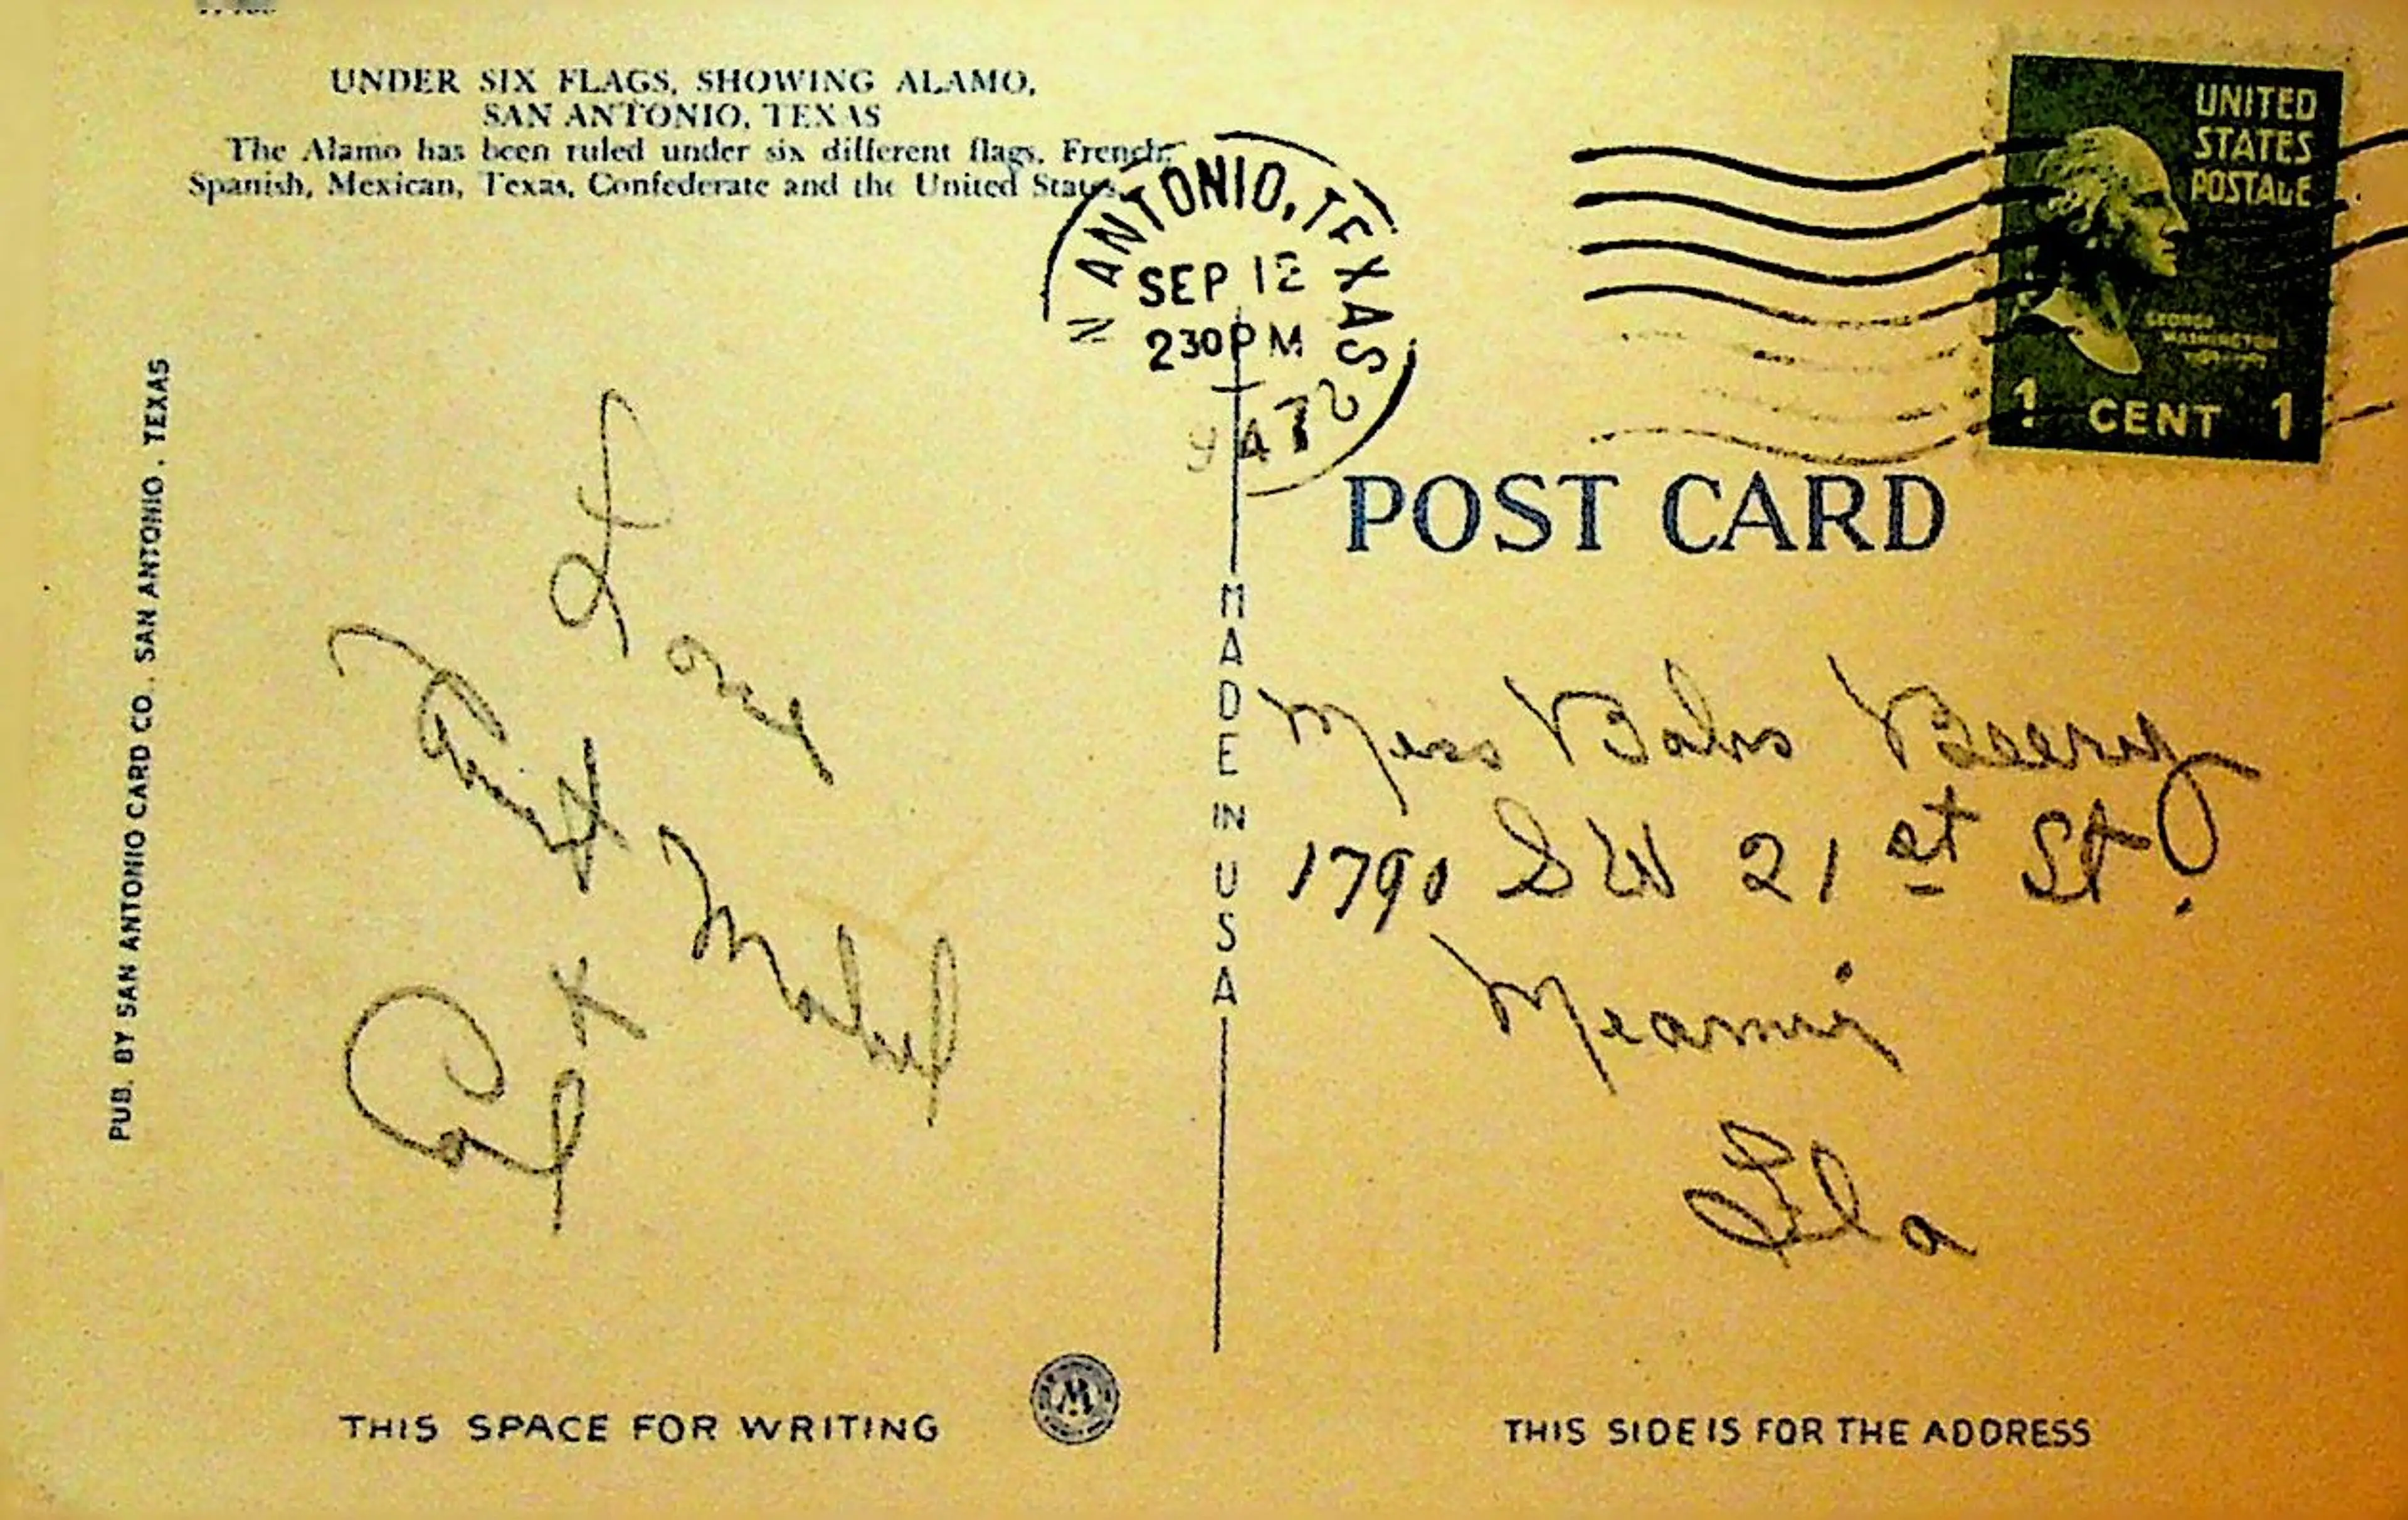 UNDER SIX FLAGS, SHOWING ALAMO,
SAN ANTONIO, TEXAS
The Alamo has been ruled under six different flags. French,
Spanish, Mexican, Texas, Confederate and the United States.
N ANTONIO, TEXAS 2
SEP 12
230 PM
1947
UNITED
STATES
POSTAGE
GEORGE
WASHINGTON
1 CENT 1
POST CARD
PUB. BY SAN ANTONIO CARD CO., SAN ANTONIO, TEXAS
MADE IN USA
Love
Aunt Mabel
& Carl
Miss Babs Beery
1790 SW 21st St.
Miami
Fla
THIS SPACE FOR WRITING
W
THIS SIDE IS FOR THE ADDRESS